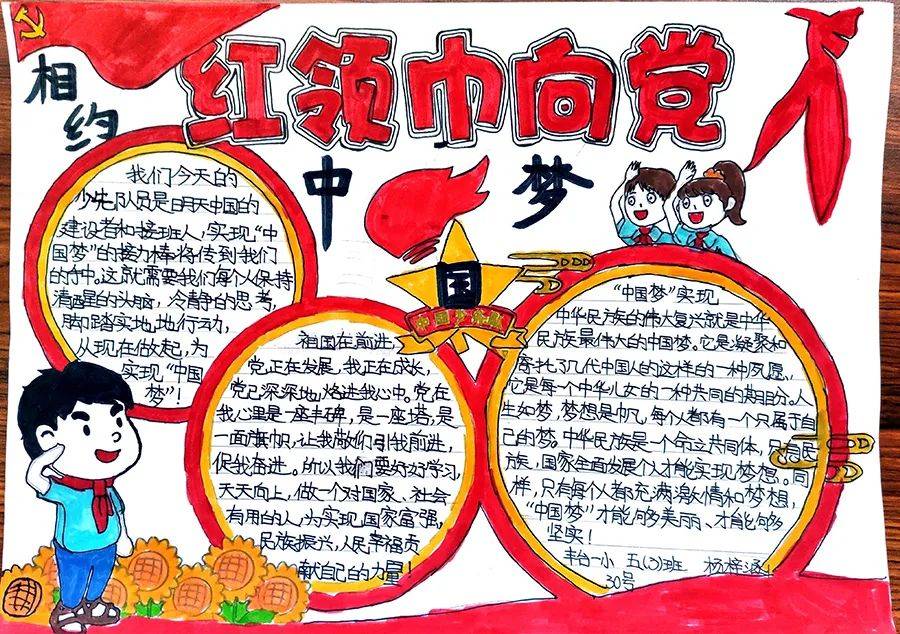 红领巾向党
相约
中国梦
中国少先队
我们今天的
少先队员是明天中国的
建设者和接班人,实现“中
国梦”的接力棒将传到我们
的手中。这就需要我们每个人保持
清醒的头脑,冷静的思考,
脚踏实地地行动,
从现在做起,为
实现“中国
梦”!
祖国在前进,
党,正在发展,我正在成长,
党已深深地烙进我心中。党在
我心里是一座丰碑,是一座塔,是
一面旗帜,让我敬们引我前进,
促我奋进。所以我们要好好学习,
天天向上,做一个对国家、社会
有用的人,为实现国家富强,
民族振兴,人民幸福贡
献自己的力量!
“中国梦”实现
中华民族的伟大复兴就是中华
民族最伟大的中国梦。它是凝聚和
寄托了几代中国人的这样的一种夙愿,
它是每个中华儿女的一种共同的期盼。人
生如梦,梦想是帆,每个人都有一个只属于自
己的梦。中华民族是一个命立共同体,只有民
族,国家全面发展个人才能实现梦想。同
样,只有每个人都充满激情和梦想,
“中国梦”才能够美丽、才能够
坚实!
丰台一小 五(3)班 杨梓涵
30号